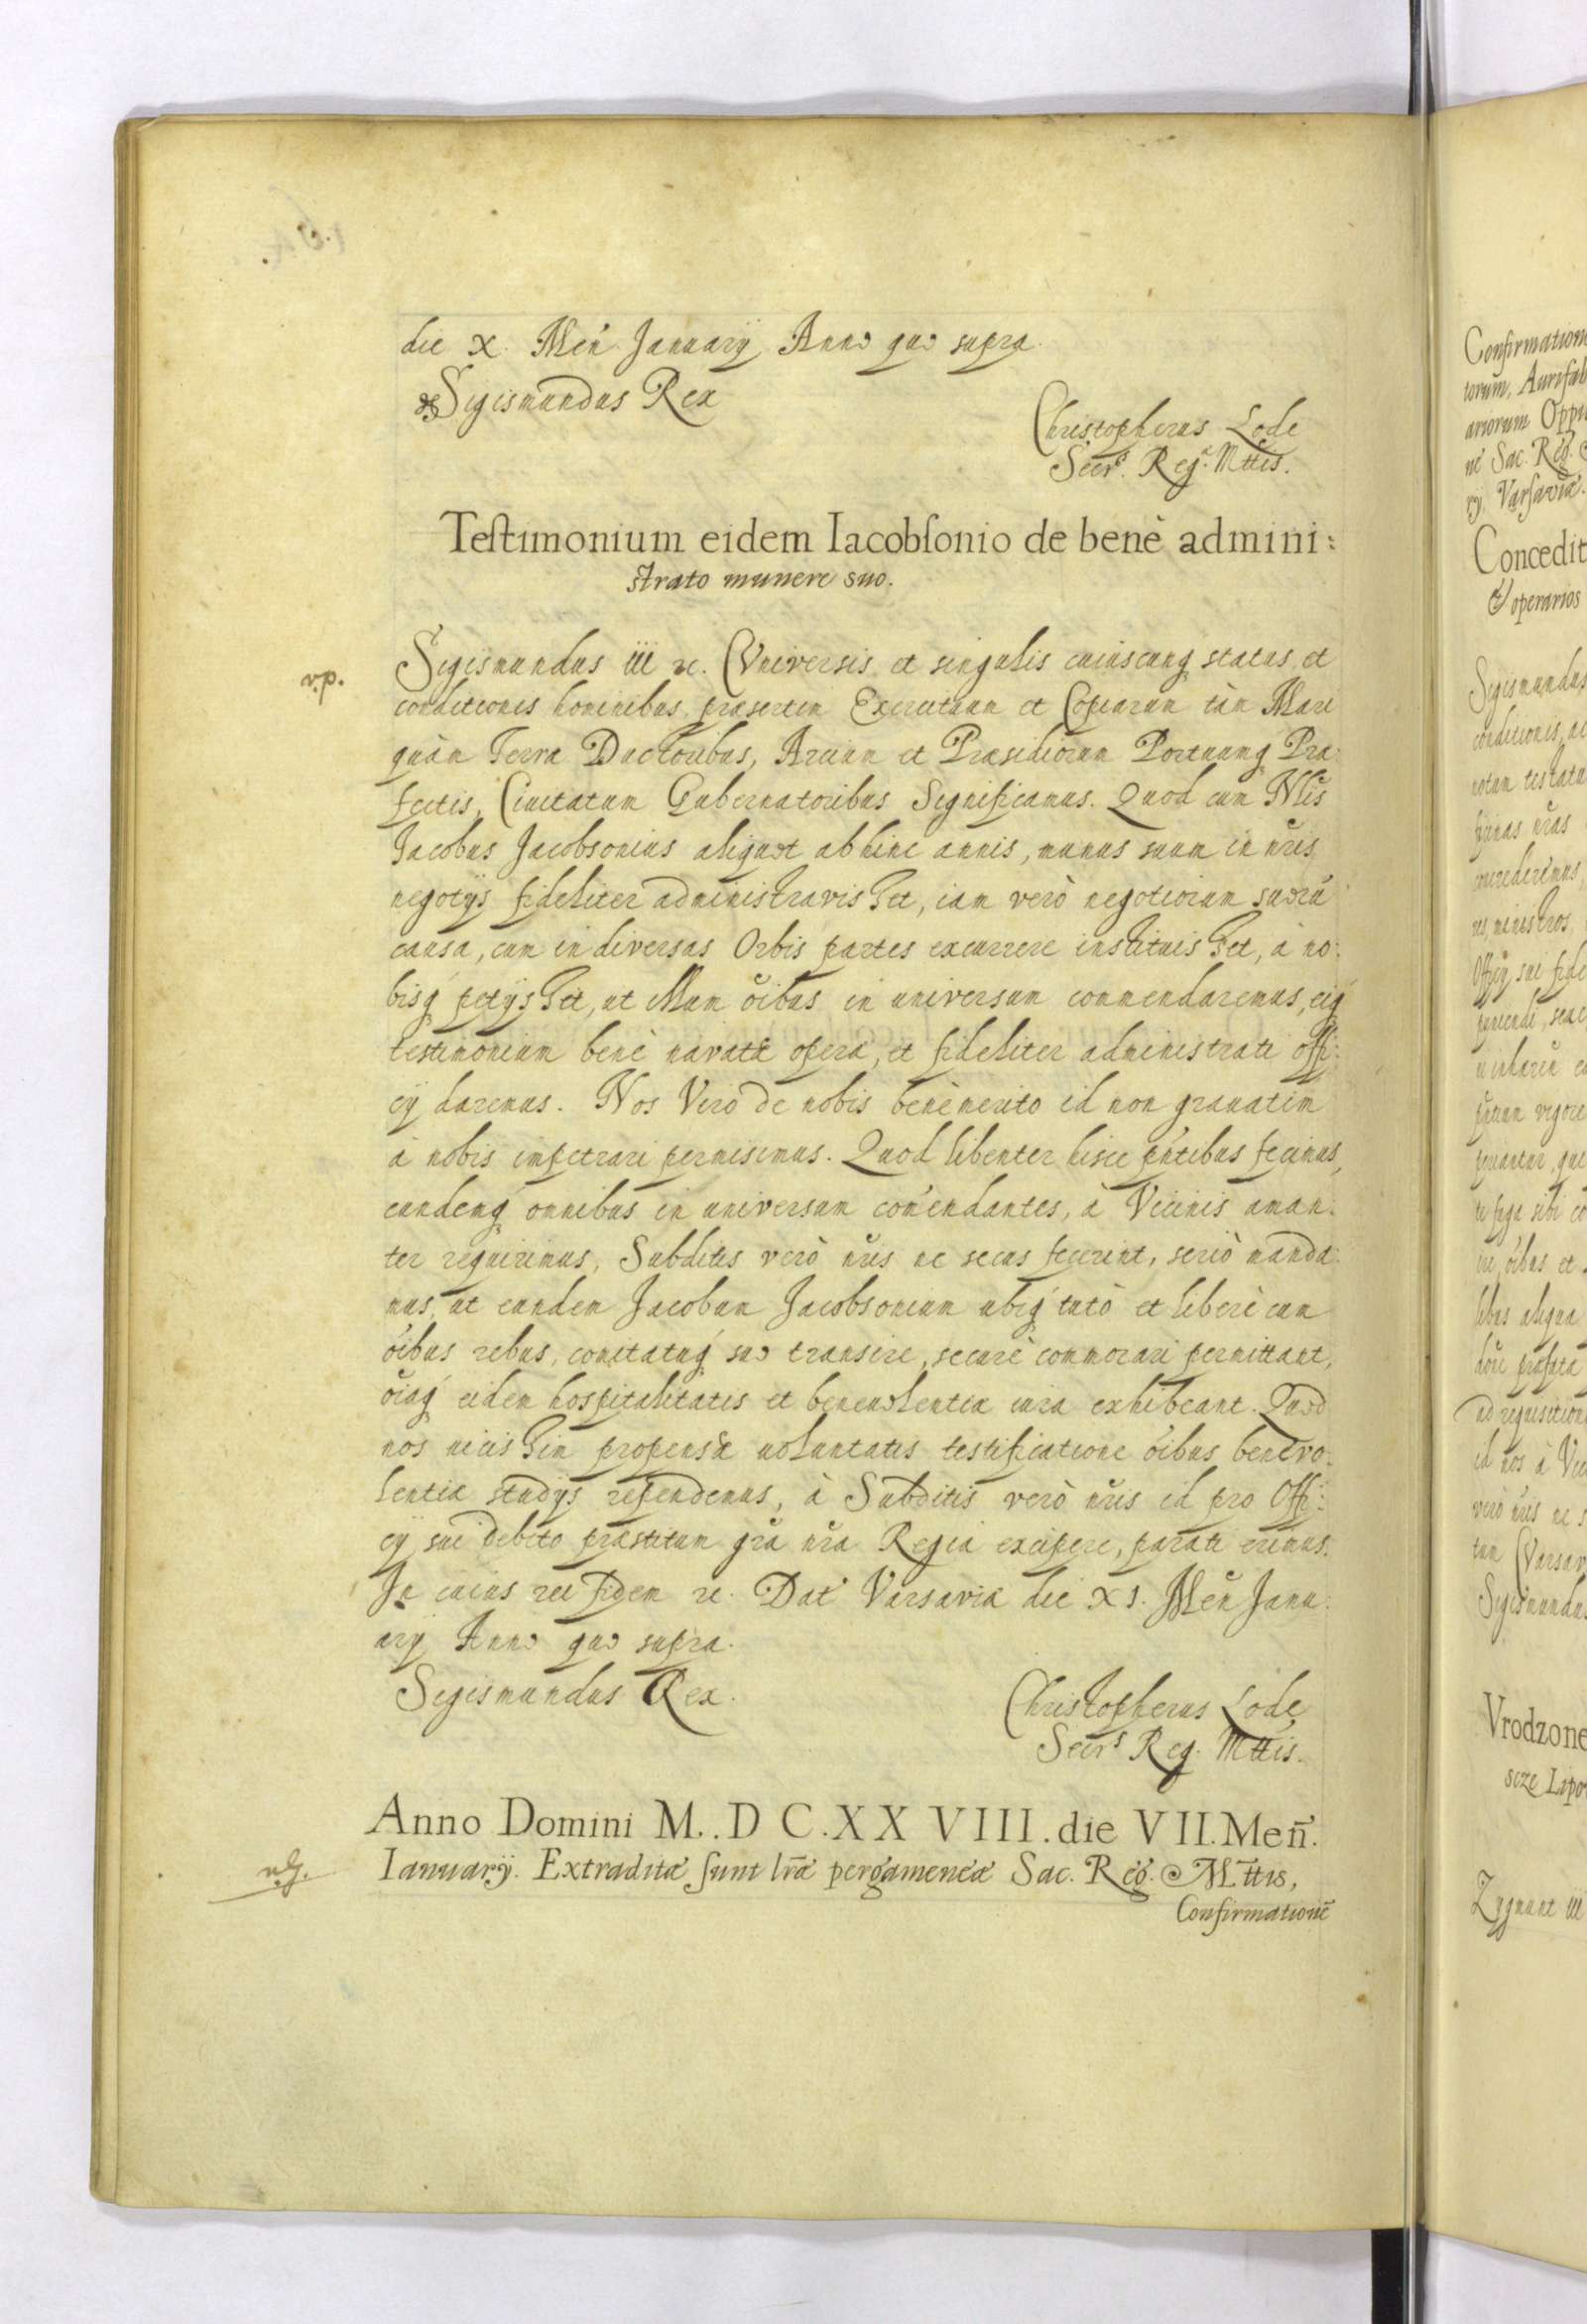 die X. Men̄ Januarij Anno quo supra.
Sigismundus Rex
Christopherus Lode
Secrs. Regᵃ. Mttis.
Testimonium eidem Iacobsonio de benè admini:
strato munere suo.
v.p.
Sigismundus III ꝛc. Vniversis et singulis cuiuscunq́ status et
conditionis hominibus præsertim Exercituum et Copiarum tàm Mari
quàm Terra Ductoribus, Arcium et Præsidiorum Portuumq́ Præ:
fectis, Ciuitatum Gubernatoribus Significamus. Quod cum Nlis̄
Jacobus Jacobsonius aliquot abhinc annis, munus suum in nr̄is
negotijs fideliter administravisset, iam verò negotiorum suorū
causa, cum in diversas Orbis partes excurrere instituisset, à no:
bisq́ petijsset, ut illum oībus in universum commendaremus, eiq́
testimonium benè navatæ operæ, et fideliter administrati offi:
cij daremus. Nos Vero de nobis benèmerito id non grauatim
à nobis impetrari permisimus. Quod libenter hisce pn̄tibus fecimus,
eundemq́ omnibus in universum com̄endantes, à Vicinis aman:
ter requirimus, Subditis verò nr̄is ne secus fecerint, seriò manda:
mus, ut eundem Jacobum Jacobsonium ubiq́ tutò et liberè cum
oībus rebus, comitatuq́ suo transire, securè commorari permittant,
oīaq́ eidem hospitalitatis et beneuolentiæ iura exhibeant. Quod
nos uicissim propensæ uoluntatis testificatione oībus benevo:
lentiæ studijs rependemus, à Subditis verò nr̄is id pro Offi:
cij sui debito præstitum gr̄a nr̄a Regia excipere, parati erimus.
In cuius rei fidem ꝛc. Dat̄ Varsaviæ die XI. Men̄ Janu:
arij Anno quo supra.
Sigismundus Rex.
Christopherus Lode
Secrs Reg. Mttis.
Anno Domini M..D C.XX VIII.die VII.Men̄.
Ianuarij. Extraditæ sunt lr̄æ pergameneæ Sac. Reg. Mttis,
Confirmationē
Confirmation
torum, Aurifab
ariorum Oppi
nè Sac. Reg.
rij, Varsaviæ.
Concedit
& operarios
Sigismundus
conditionis, ac
notum testatu
ad requisition
id nos à Vic
verò nr̄is ne s
tum Varsav
Sigismundus
Vrodzone
Zygmunt III